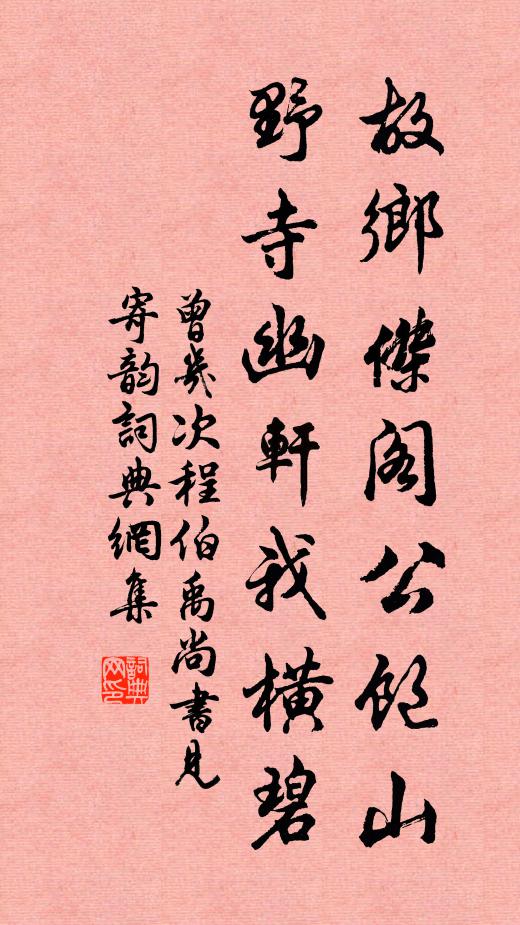 故鄉傑閣公飽山
野寺幽軒我橫碧
曾幾次程伯禹尚書見
寄韵詞典網集
詞典網印